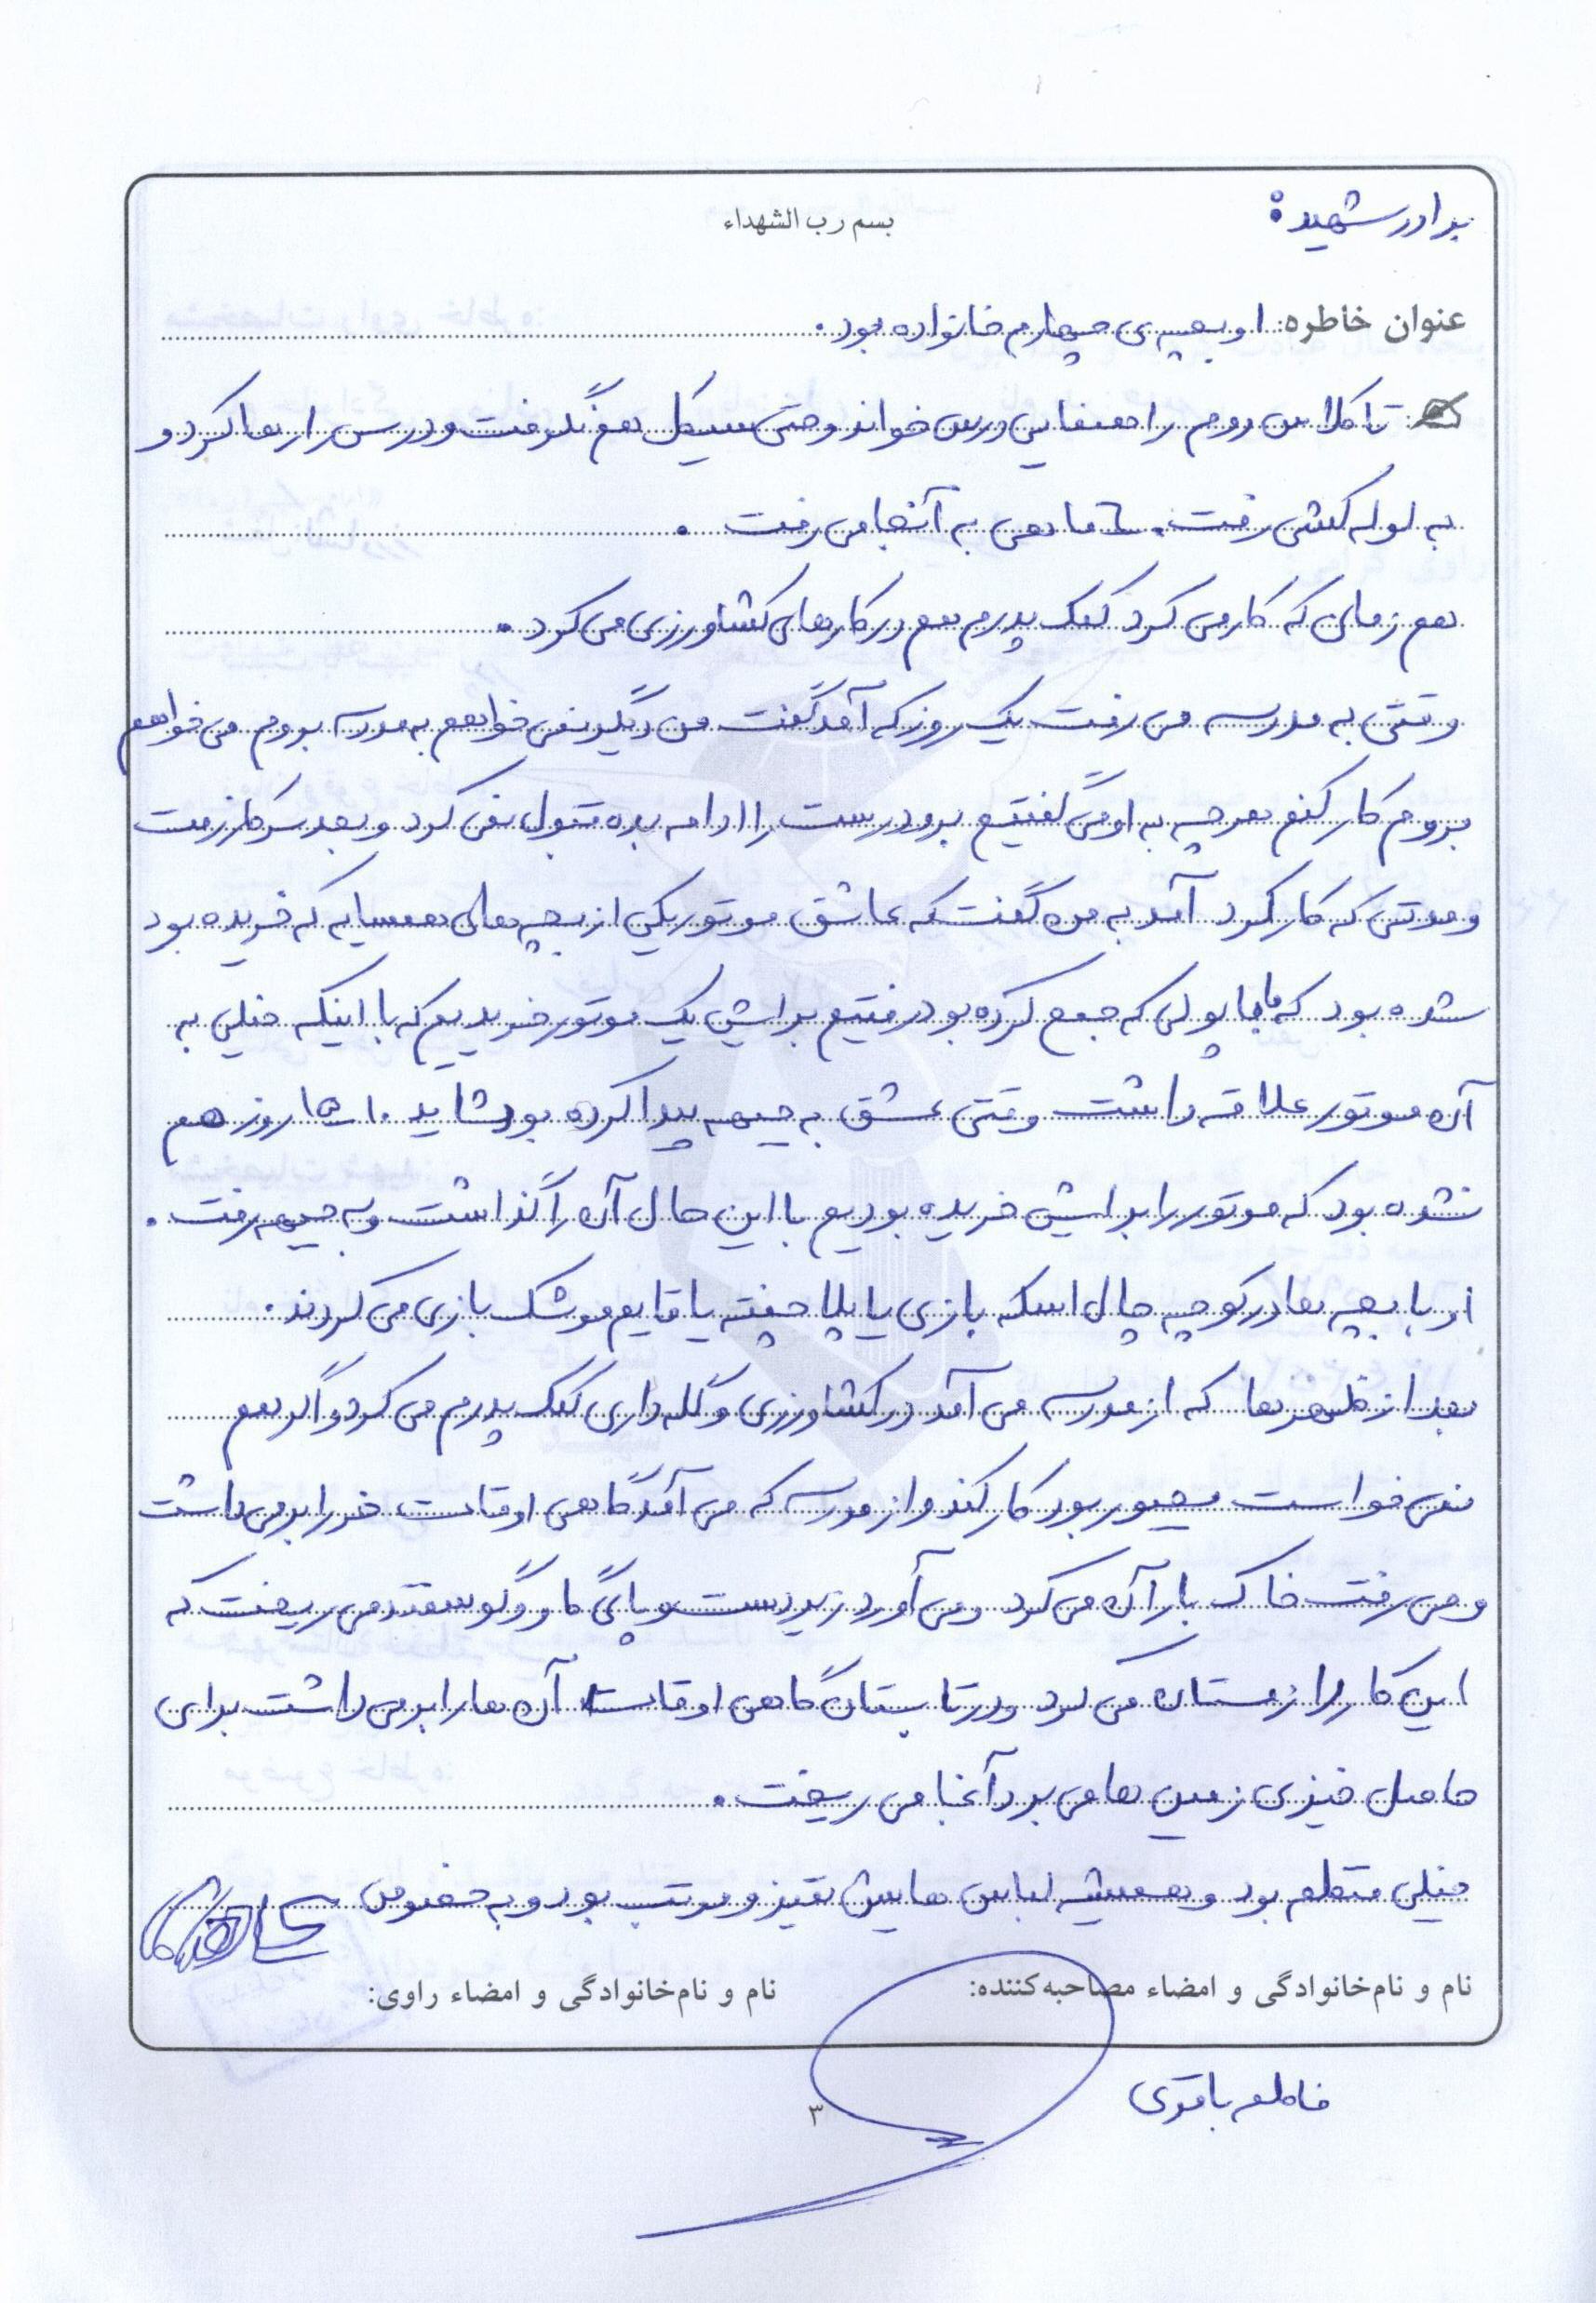 برادر شهید:
بسم رب الشهداء
عنوان خاطره: او بچه ی چهارم خانواده بود.
تا کلاس دوم راهنمایی درس خواند و حتی سیکل هم نگرفت و درس را رها کرد و
به لوله کشی رفت. ۲ ماهی به آنجا می رفت.
هم زمانی که کار می کرد کمک پدرم هم در کارهای کشاورزی می کرد.
وقتی به مدرسه می رفت یک روز که آمد گفت من دیگر نمی خواهم به مدرسه بروم می خواهم
بروم کار کنم هر چه به او می گفتیم برو درست را ادامه بده قبول نمی کرد و بعد سرکار رفت
و مدتی که کار کرد آمد به من گفت که عاشق موتور یکی از بچه های همسایه که خریده بود
شده بود که ما با پولی که جمع کرده بود رفتیم برایش یک موتور خریدیم که با اینکه خیلی به
آن موتور علاقه داشت وقتی عشق به جبهه پیدا کرده بود شاید ۱۰ ـ ۱۵ روز هم
نشده بود که موتور را برایش خریده بودیم با این حال آن را گذاشت و به جبهه رفت.
او با بچه ها در کوچه چال اسکه بازی یا پلا چفته یا قایم موشک بازی می کردند.
بعد از ظهر ها که از مدرسه می آمد در کشاورزی و گله داری کمک پدرم می کرد و اگر هم
نمی خواست مجبور بود کار کند و از مدرسه که می آمد گاهی اوقات خر را برمی داشت
و می رفت خاک بار آن می کرد و می آورد زیر دست و پای گاو و گوسفند می ریخت که
این کار را زمستان می کرد و در تابستان گاهی اوقات آن ها را برمی داشت برای
حاصل خیزی زمین ها می برد آنجا می ریخت.
خیلی منظم بود و همیشه لباس هایش تمیز و مرتب بود و به خصوص
نام و نام‌خانوادگی و امضاء مصاحبه‌کننده:
نام و نام‌خانوادگی و امضاء راوی:
فاطمه باقری
۳